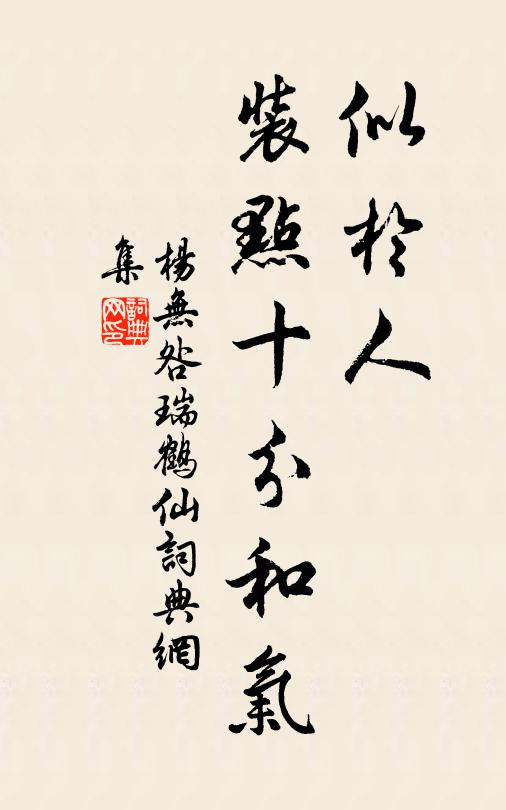 似於人
裝點十分和氣
楊無咎瑞鶴仙詞典網
集
詞典
網印